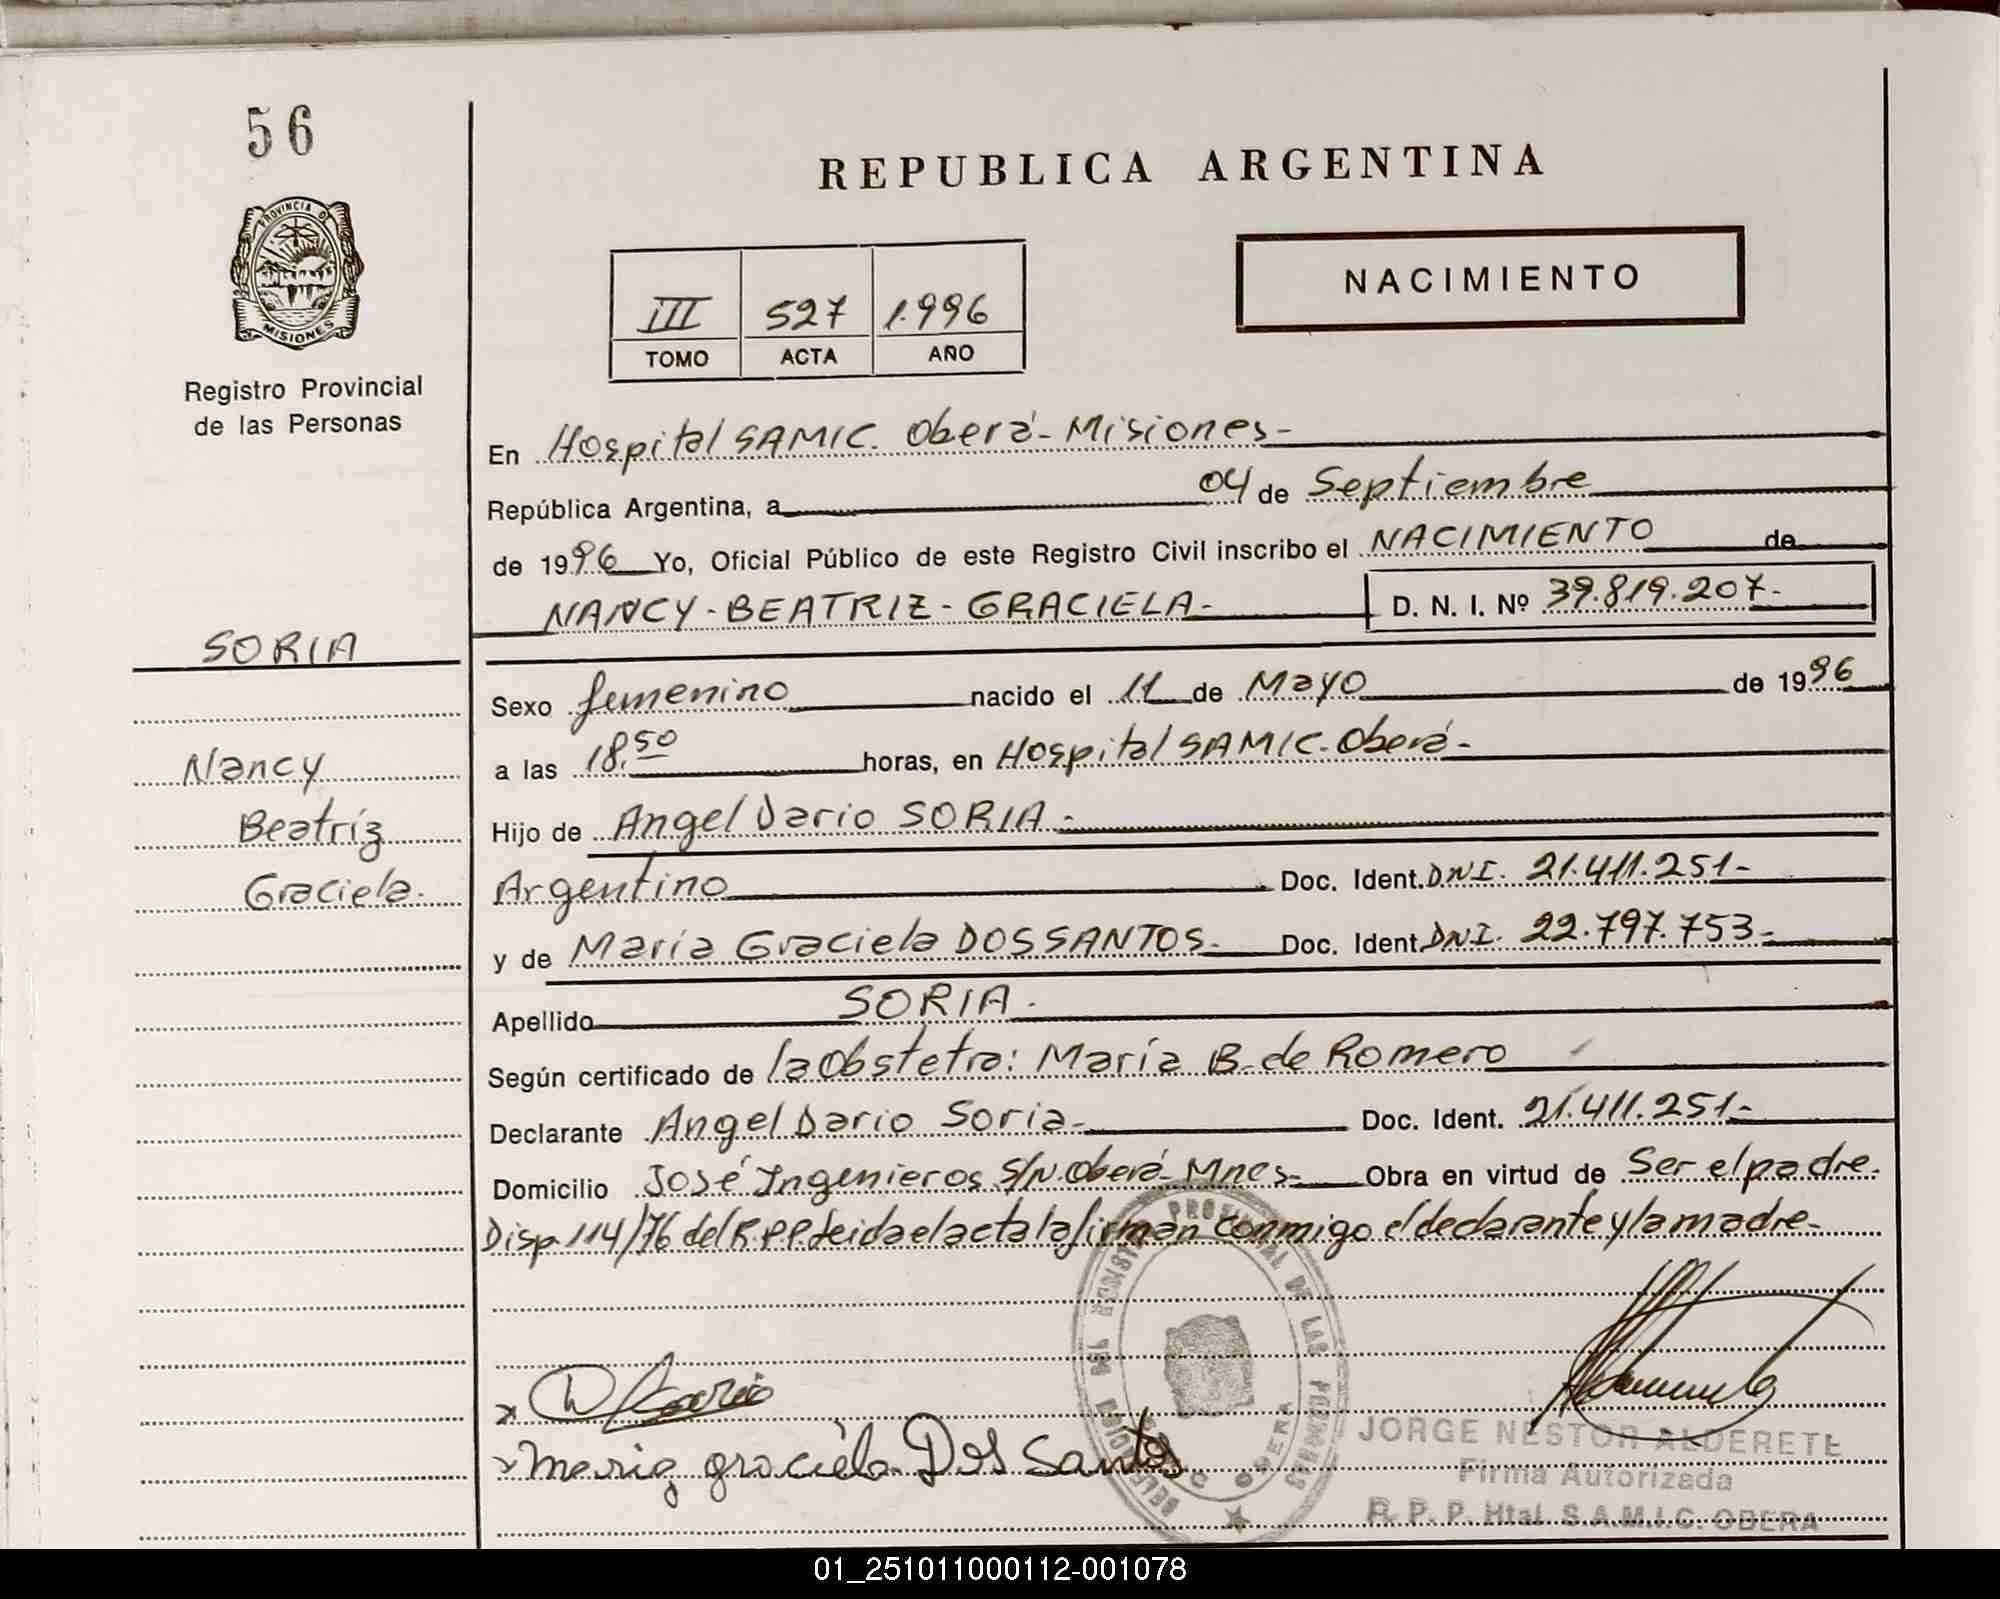 56
REPUBLICA ARGENTINA
PROVINCIA DE
MISIONES
Registro Provincial
de las Personas
NACIMIENTO
III 527 1.996
TOMO ACTA AÑO
En Hospital SAMIC. Oberá- Misiones-
República Argentina, a 04 de Septiembre
de 1996 Yo, Oficial Público de este Registro Civil inscribo el NACIMIENTO de
NANCY-BEATRIZ-GRACIELA- D. N. I. Nº 39.819.207-
SORIA
Nancy
Beatríz
Graciela.
Sexo femenino nacido el 11 de Mayo de 1996
a las 18,50 horas, en Hospital SAMIC. Oberá-
Hijo de Angel Dario SORIA-
Argentino Doc. Ident. DNI. 21.411.251-
y de María Graciela DOS SANTOS- Doc. Ident. DNI. 22.797.753-
Apellido SORIA-
Según certificado de la Obstetra: María B. de Romero
Declarante Angel Dario Soria- Doc. Ident. 21.411.251-
Domicilio José Ingenieros S/N. Oberá- Mnes- Obra en virtud de Ser el padre.
Disp. 114/76 del R.P.P. leida el acta la firman conmigo el declarante y la madre-
DELEGACION DEL REGISTRO PROVINCIAL DE LAS PERSONAS
OBERA
x D Soria
x maria graciela Dos Santos
JORGE NESTOR ALDERETE
Firma Autorizada
R. P. P. Htal. S.A.M.I.C. OBERA
01_251011000112-001078